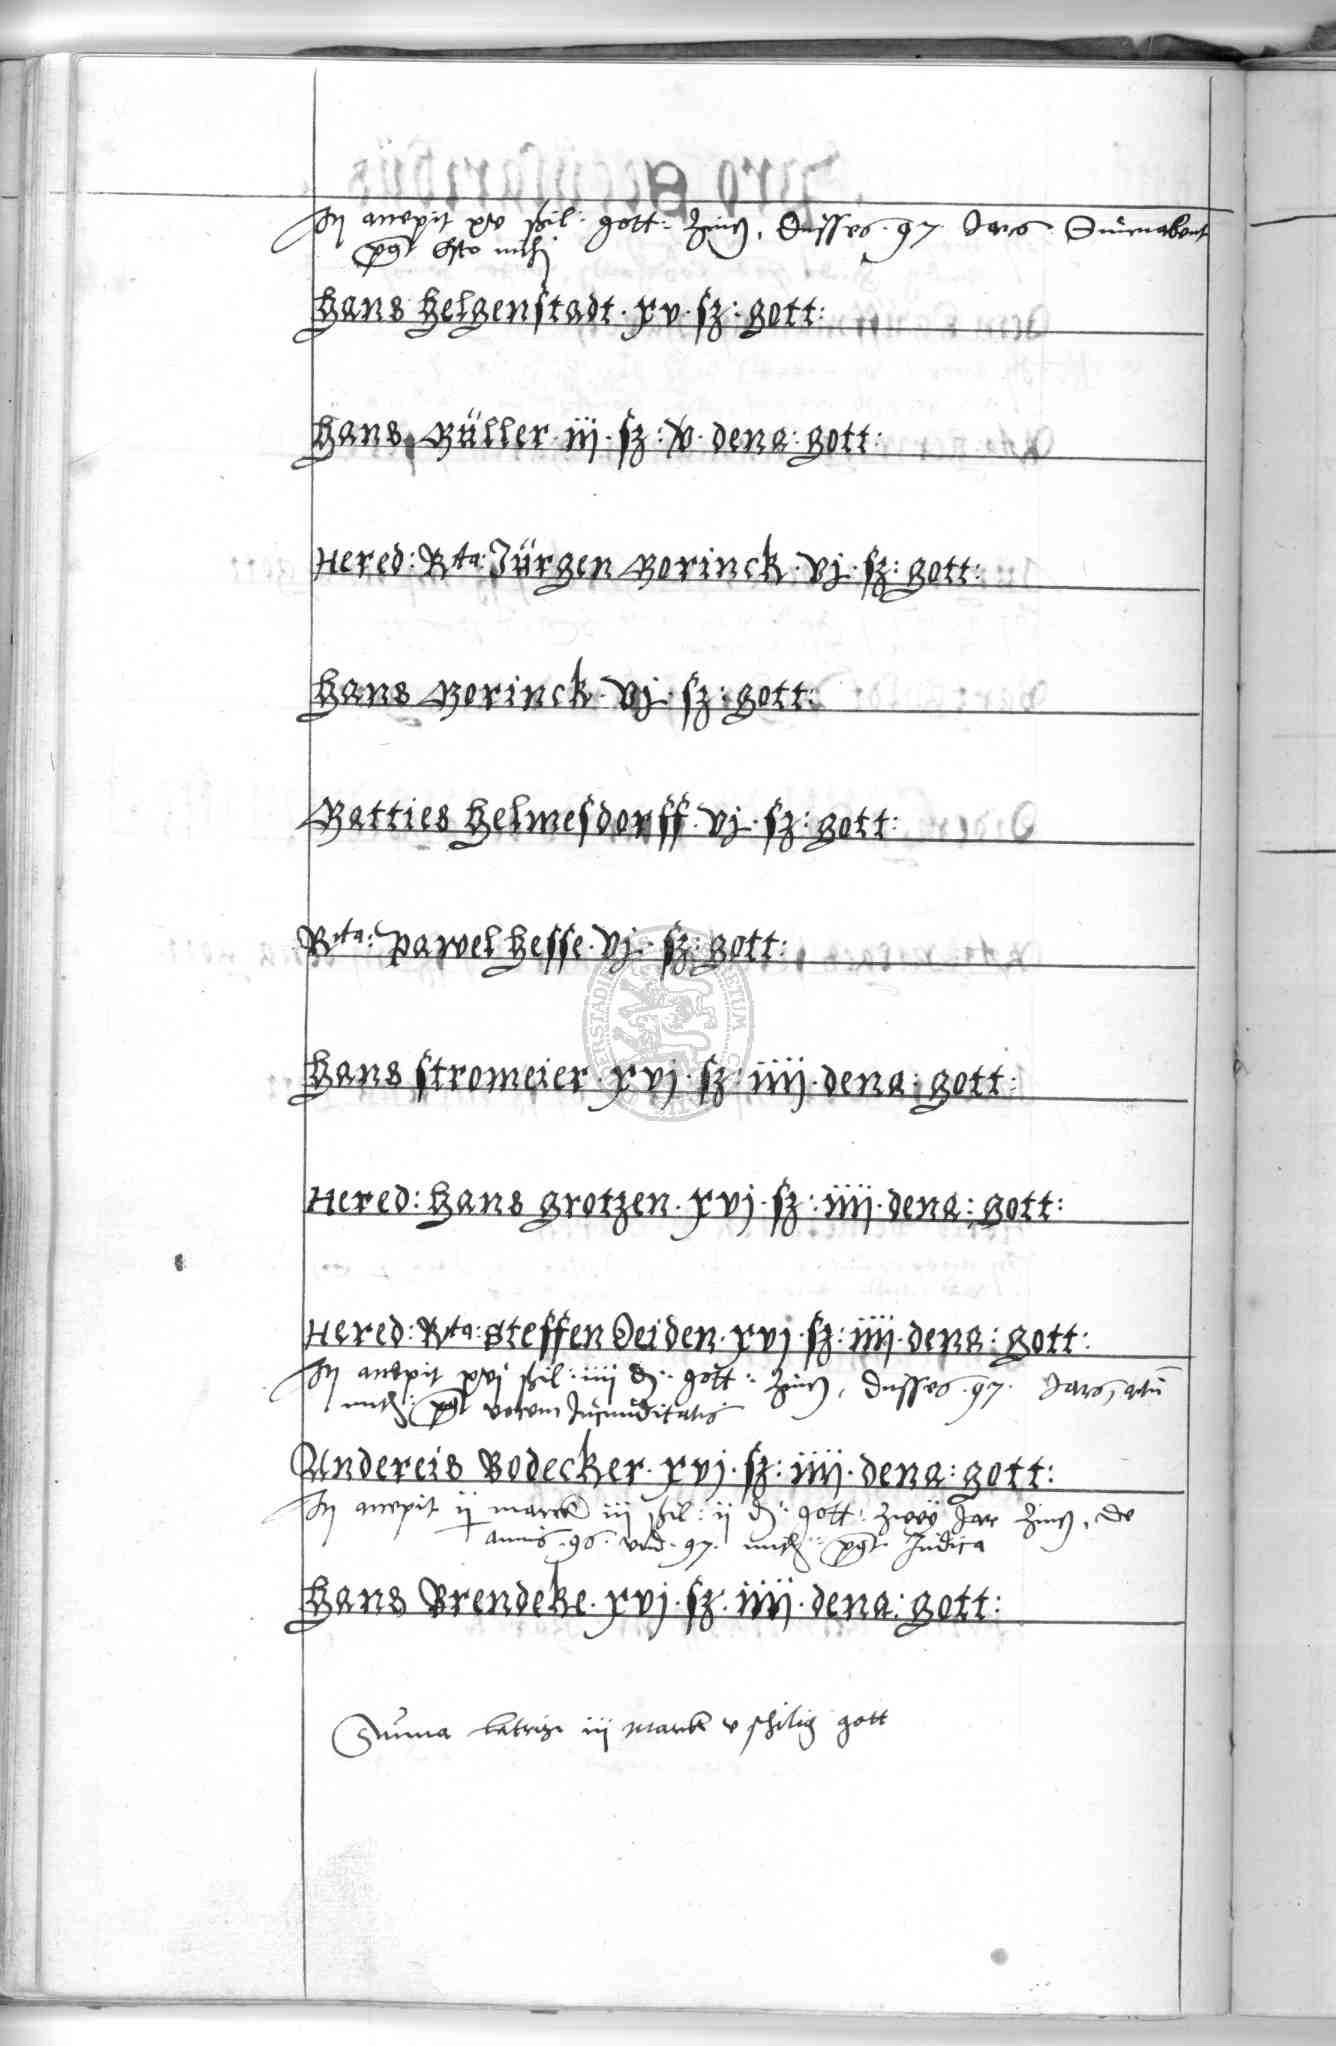 In accepit xv schil: gott: Zinß, dusses .97. Jars Sünnabent
post Esto mihi
Hans Helgenstadt · xv · sz: gott:
Hans Müller · iij · sz: v · dena: gott:
Hered: Rta: Jürgen Morinck · vj · sz: gott:
Hans Morinck · vj · sz: gott:
Matties Helmesdorff · vj · sz: gott:
Rta: Pawel Hesse · vj · sz: gott:
Hans Stromeier · xvj · sz: iiij · dena: gott:
Hered: Hans Grotzen · xvj · sz: iiij · dena: gott:
Hered: Rta: Steffen Jeiden · xvj · sz: iiij · dena: gott:
In accepit xvj schil: iiij d: gott: Zinß, dusses .97. Jars,
post vocem Jucunditatis
Andereis Bodecker · xvj · sz: iiij · dena: gott:
In accepit ij marck iij schil: ij d: gott: zwey Jar Zinß, de
annis .96. und .97. post Judica
Hans Brendeke · xvj · sz: iiij · dena: gott:
Summa lateris iij marck v schilig gott